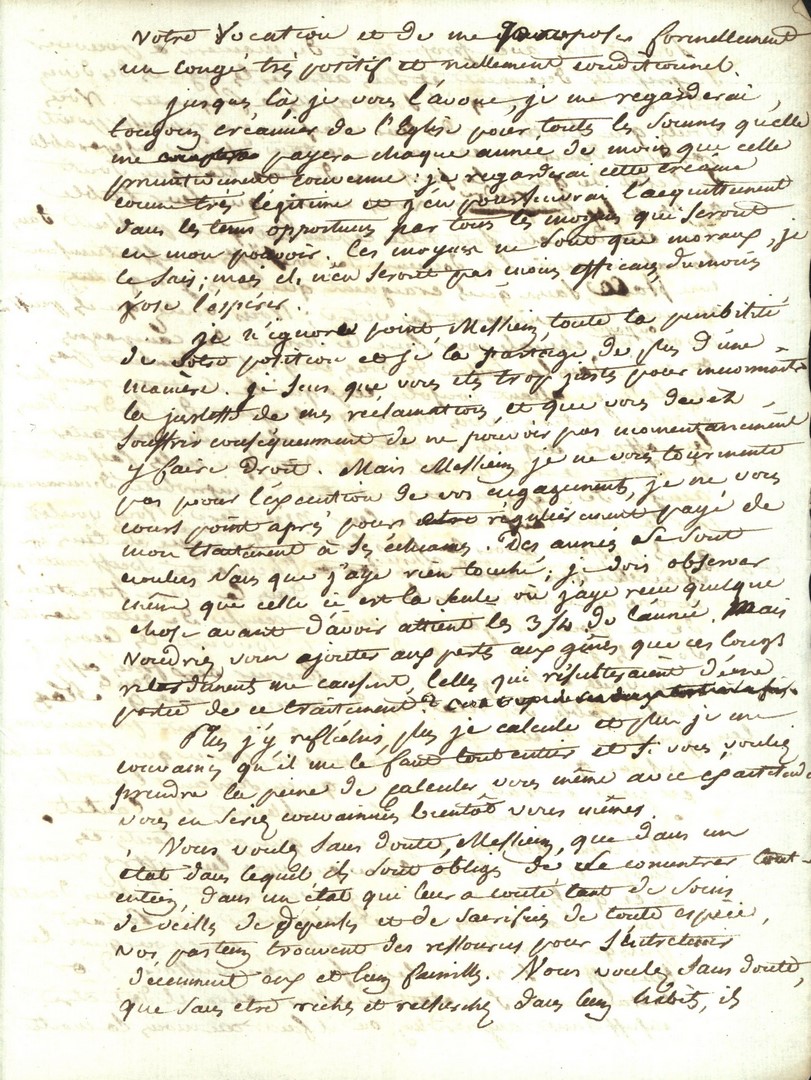 votre vocation et de me formellement
un congé très positif et nullement conditionnel.
jusques là je vous l'avoue, je me regarderai
toujours créancier de l'Eglise pour toutes les sommes qu'elle
me payera chaque année de moins que celle
primitivement convenue : je regarderai cette créance
comme très légitime et j'en poursuivrai l'acquittement
dans les tems opportuns par tous les moyens qui seront
en mon pouvoir. Ces moyens ne sont que moraux, je
le sais ; mais ils n'en seront pas moins efficaces du moins
j'ose l'espérer.
je n'ignore point, Messieurs, toute la pénibilité
de votre position et je la partage de plus d'une
manière. je sens que vous êtes trop justes pour méconnaître
la justesse de mes réclamations, et que vous devez
souffrir conséquemment de ne pouvoir pas momentanément
y faire droit. Mais Messieurs je ne vous tourmente
pas pour l'exécution de vos engagemens, je ne vous
cours point après pour être régulièrement payé de
mon traitement à ses échéances. Des années se sont
écoulées sans que j'aye rien touché ; je dois observer
même que celle ci est la seule où j'aye reçu quelque
chose avant d'avoir atteint les 3/4 de l'année. Mais
voudriez vous ajouter aux pertes aux gênes que ces longs
retardemens me causent, celles qui résulteraient d'une
partie de ce traitement
Plus j'y réfléchis, plus je calcule et plus je me
convaincs qu'il me le faut tout entier et si vous vouliez
prendre la peine de calculer vous même avec exactitude
vous en seriez convaincus bientôt vous mêmes.
Vous voulez sans doute, Messieurs, que dans un
état dans lequel ils sont obligés de se concentrer tout-
entiers, dans un état qui leur a couté tant de soins
de veilles de dépenses et de sacrifices de toute espèce,
vos pasteurs trouvent des ressources pour s'entretenir
décemment eux et leurs familles. Vous voulez sans doute,
que sans etre riches et recherchés dans leurs habits, ils